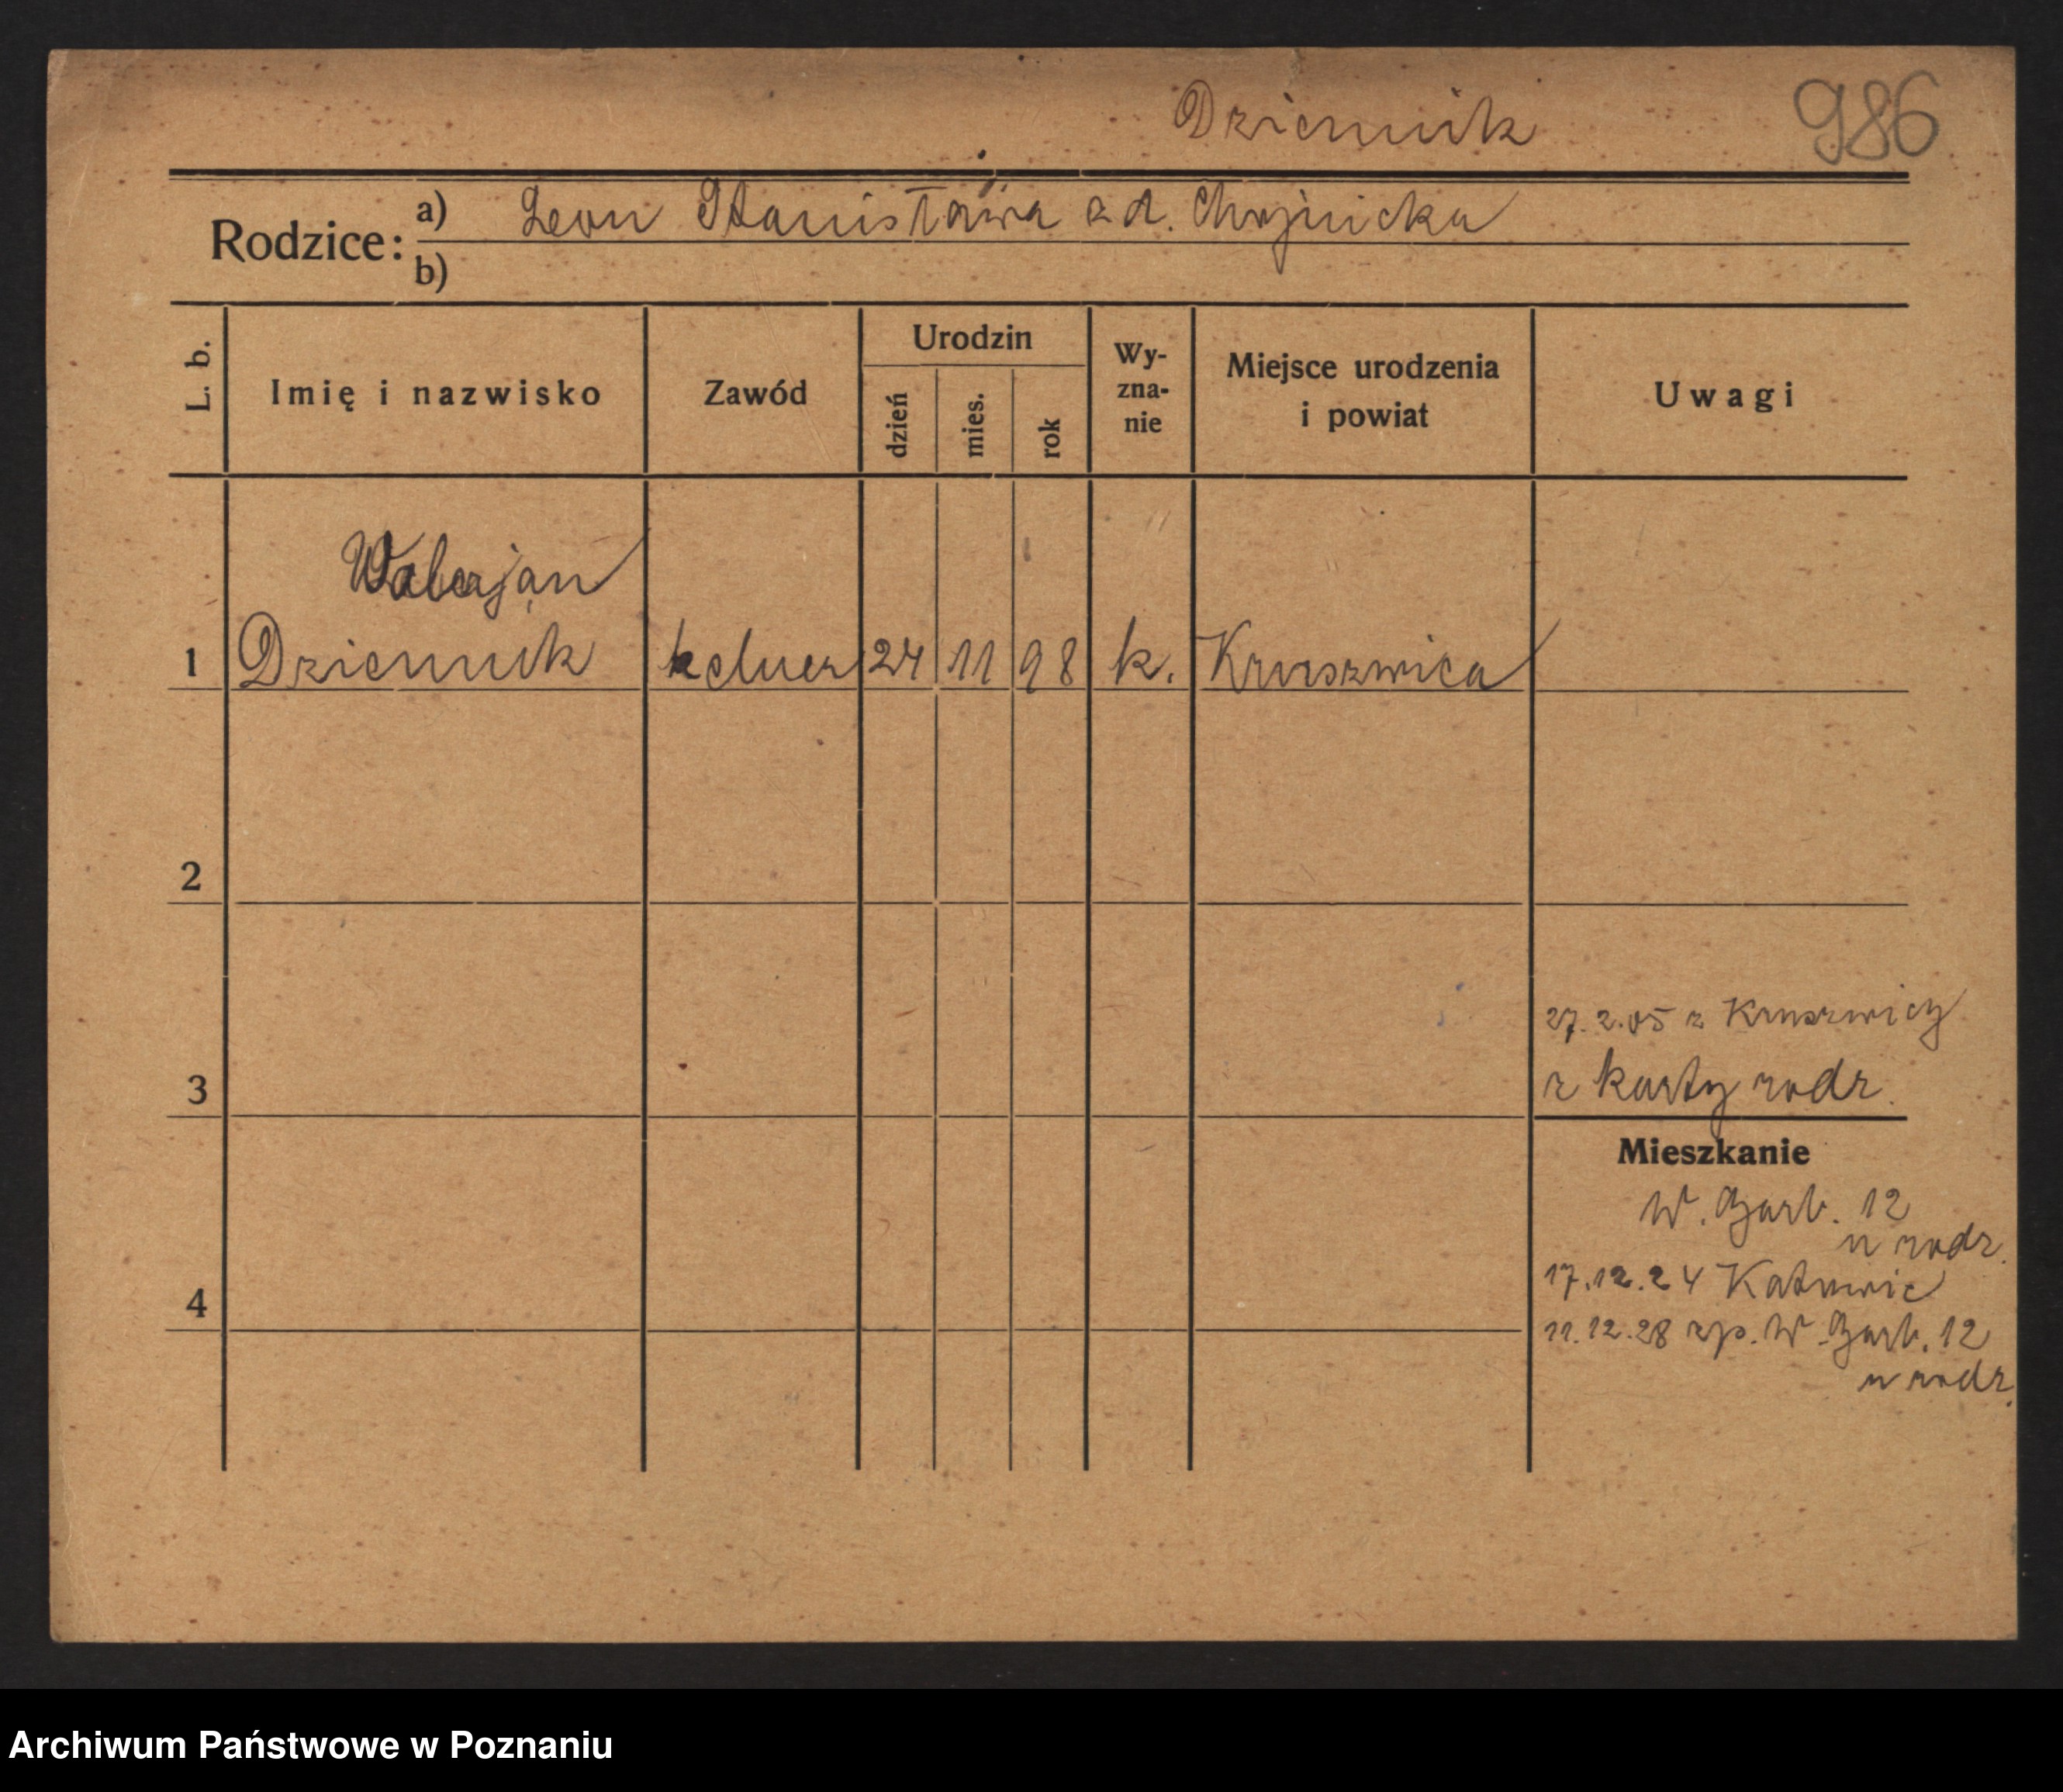 Dziennik 986
Rodzice: a) Leon Stanisława zd. Chojnicka
b)
L. b. Imię i nazwisko Zawód Urodzin dzień mies. rok Wy-zna-nie Miejsce urodzenia i powiat Uwagi
Walerjan
1 Dziennik kelner 24 11 98 k. Kruszwica
2
27.2.05 z Kruszwicy
3 z karty rodz.
Mieszkanie
W. Garb. 12
u rodz.
17.12.24 Katowic
4
11.12.28 zp. W. Garb. 12
u rodz.
Archiwum Państwowe w Poznaniu